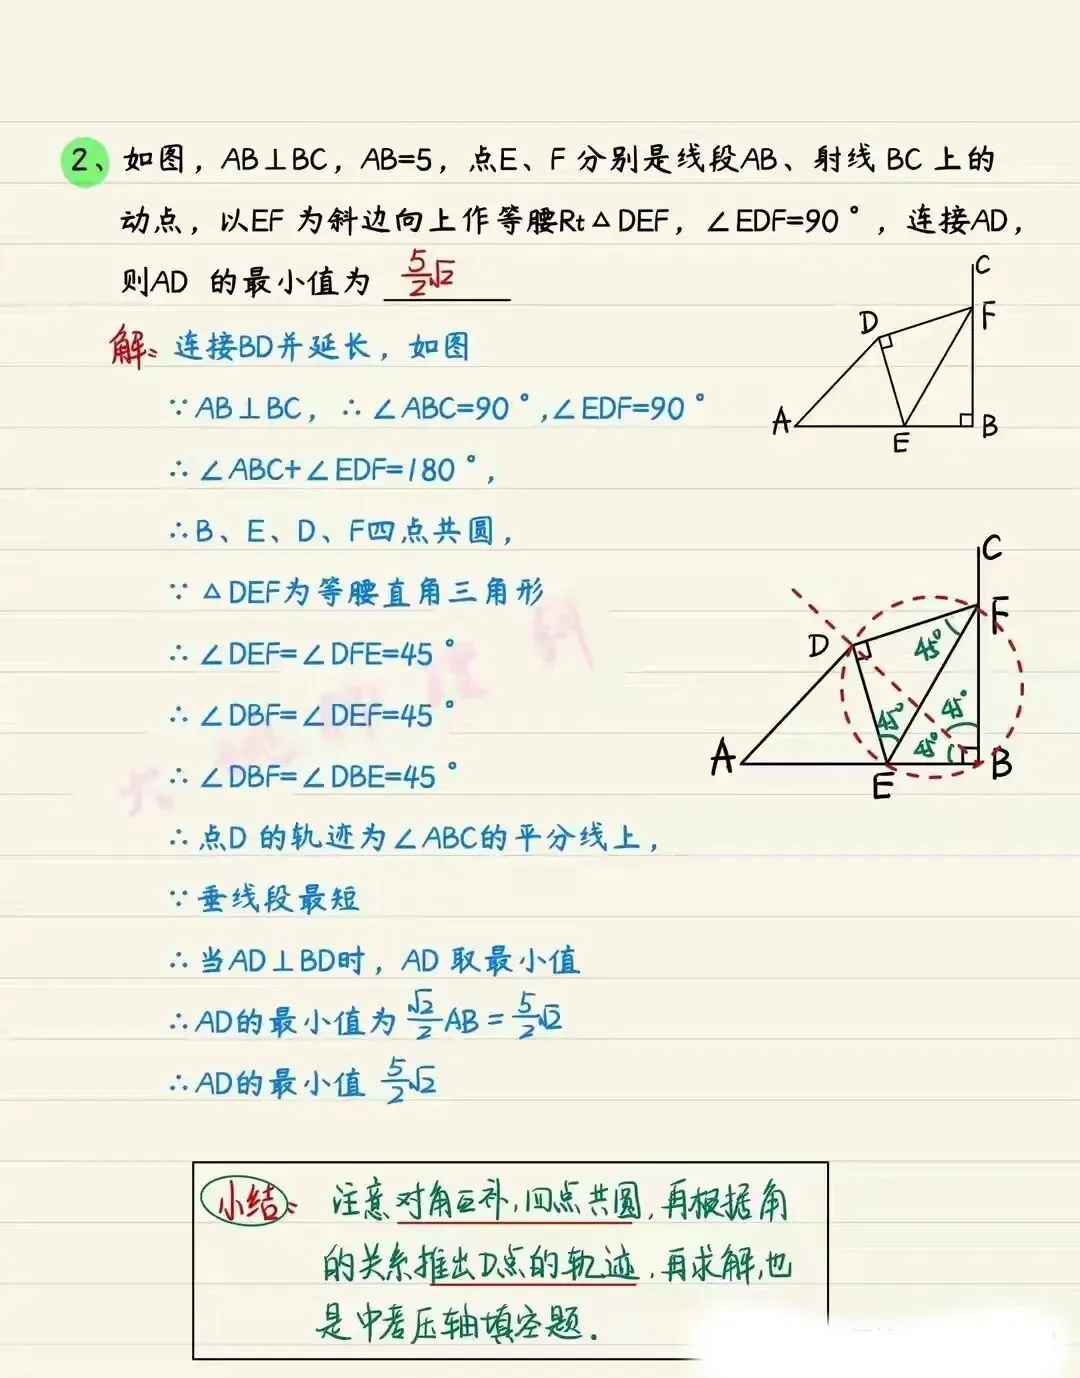 2、如图，AB⊥BC，AB=5，点E、F 分别是线段AB、射线 BC 上的
动点，以EF 为斜边向上作等腰Rt△DEF，∠EDF=90°，连接AD，
则AD 的最小值为 5/2√2
C
D
F
A
E
B
解：连接BD并延长，如图
∵AB⊥BC，∴∠ABC=90°,∠EDF=90°
∴∠ABC+∠EDF=180°，
∴B、E、D、F四点共圆，
∵△DEF为等腰直角三角形
∴∠DEF=∠DFE=45°
∴∠DBF=∠DEF=45°
∴∠DBF=∠DBE=45°
∴点D 的轨迹为∠ABC的平分线上，
∵垂线段最短
∴当AD⊥BD时，AD 取最小值
∴AD的最小值为 √2/2 AB = 5/2√2
∴AD的最小值 5/2√2
C
F
D
45°
45°
45°
45°
A
E
B
小结：注意对角互补，四点共圆，再根据角
的关系推出D点的轨迹，再求解，也
是中考压轴填空题．